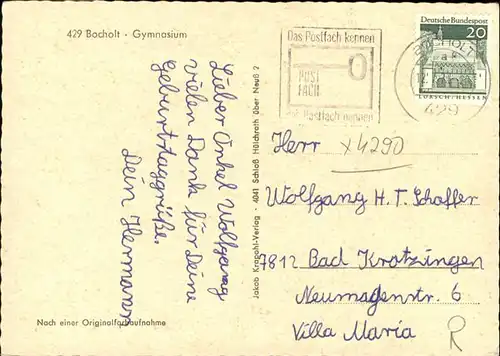 429 Bocholt - Gymnasium
Lieber Onkel Wolfgang
vielen Dank für Deine
Geburtstaggrüße.
Dein Hermann
Nach einer Originalfarbaufnahme
Jakob Krapohl-Verlag · 4041 Schloß Hülchrath über Neuß 2
Das Postfach kennen
POST
FACH
Postfach nennen
BOCHOLT
429
Deutsche Bundespost
20
LORSCH/HESSEN
Herr x4290
Wolfgang H. T. Schaffer
7812 Bad Krotzingen
Neumagenstr. 6
Villa Maria R